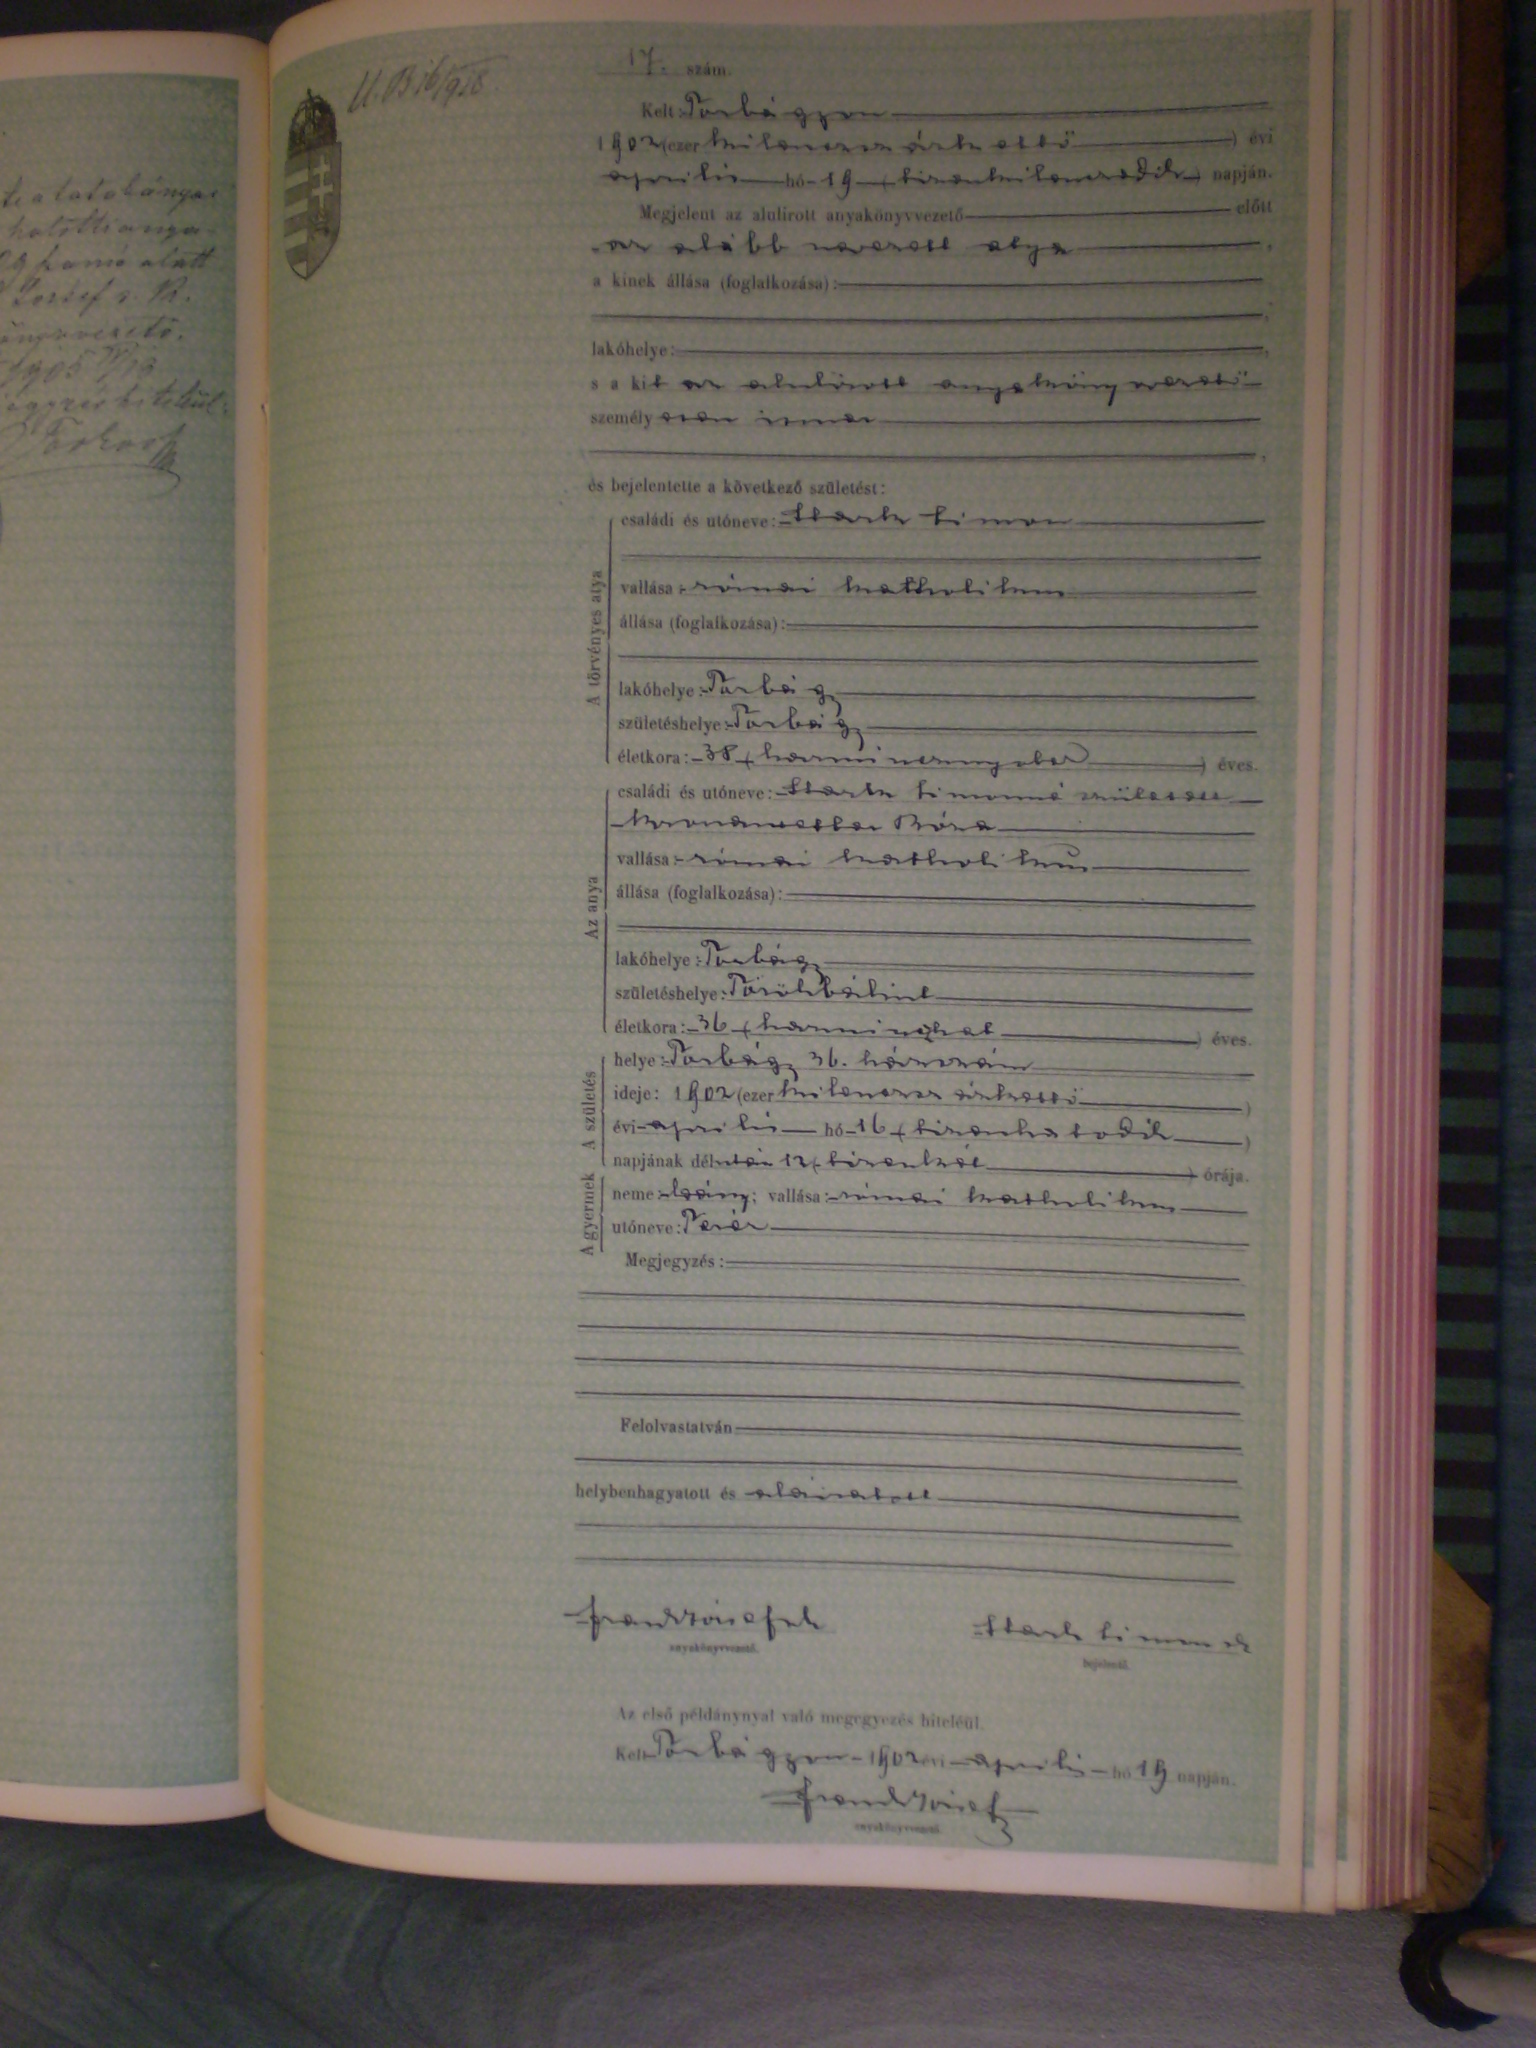 te a tatabányai
halotti anya
alatt
József s. k.
1905 IV/13
U. B. 16/918.
17. szám.
Kelt: Torbágyon
1902 (ezer kilencszázkettő) évi
április hó 19 (tizenkilencedik) napján.
Megjelent az alulirott anyakönyvvezető előtt
az alább nevezett atya,
a kinek állása (foglalkozása):
lakóhelye:
s a kit az alulirott anyakönyvvezető
személyesen ismer
és bejelentette a következő születést:
A törvényes atya
családi és utóneve: Stark Simon
vallása: római katholikus
állása (foglalkozása):
lakóhelye: Torbágy
születéshelye: Torbágy
életkora: 38 (harmincnyolc) éves.
Az anya
családi és utóneve: Stark Simonné született
Kronawetter Róza
vallása: római katholikus
állása (foglalkozása):
lakóhelye: Torbágy
születéshelye: Törökbálint
életkora: 36 (harminchat) éves.
A születés
helye: Torbágy 36. házszám
ideje: 1902 (ezer kilencszázkettő)
évi április hó 16 (tizenhatodik)
napjának délután 12 (tizenkét) órája.
A gyermek
neme: leány; vallása: római katholikus
utóneve: Teréz
Megjegyzés:
Felolvastatván
helybenhagyatott és aláiratott
Frand József s. k.
anyakönyvvezető.
Stark Simon s. k.
bejelentő.
Az első példánynyal való megegyezés hiteléül.
Kelt Torbágyon 1902 évi április hó 19 napján.
Frand József
anyakönyvvezető.